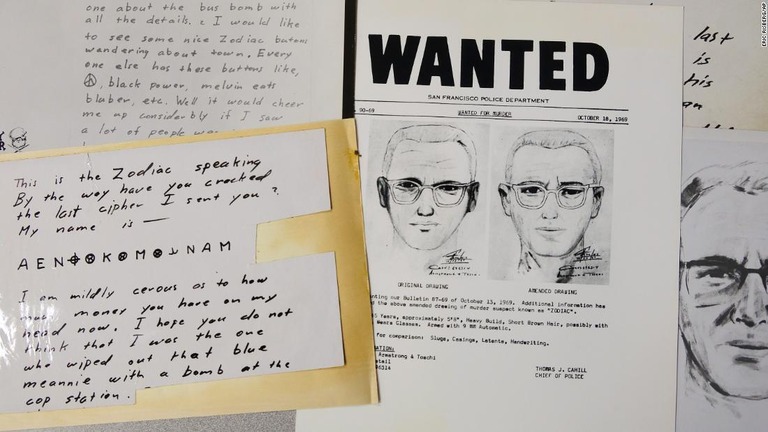 one about the bus bomb with
all the details. & I would like
to see some nice Zodiac butons
wandering about town. Every
one else has these buttons like,
black power, melvin eats
bluber, etc. Well it would cheer
me up considerbly if I saw
a lot of people
This is the Zodiac speaking
By the way have you cracked
the last cipher I sent you?
My name is —
A E N ⌖ ⊗ K ⊗ M ⊗ ⅃ N A M
I am mildly cerous as to how
much money you have on my
head now. I hope you do not
think that I was the one
who wiped out that blue
meannie with a bomb at the
cop station.
WANTED
SAN FRANCISCO POLICE DEPARTMENT
90-69 WANTED FOR MURDER OCTOBER 18, 1969
ORIGINAL DRAWING AMENDED DRAWING
ting our Bulletin 87-69 of October 13, 1969. Additional information has
the above amended drawing of murder suspect known as "ZODIAC".
5 Years, approximately 5'8", Heavy Build, Short Brown Hair, possibly with
Wears Glasses. Armed with 9 MM Automatic.
for comparison: Slugs, Casings, Latents, Handwriting.
ATION:
Armstrong & Toschi
tail
96314
THOMAS J. CAHILL
CHIEF OF POLICE
last
is
his
ERIC RISBERG/AP